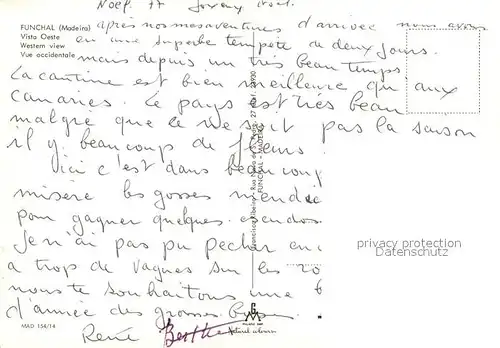 Noël 77 Joyeux Noël.
FUNCHAL (Madeira)
Vista Oeste
Western view
Vue occidentale
après nos mesaventures d'arrivée nous avons
eu une superbe tempete de deux jours.
mais depuis un très beau temps
La cantine est bien meilleure qu'aux
canaries. Le pays est très beau
malgré que ce ne soit pas la saison
il y beaucoup de fleurs.
Ici c'est dans beaucoup
misère les gosses
pour gagner quelques
Je n'ai pas pu pecher
a trop de vagues sur les
nous te souhaitons une
d'année des grosses bises
René Berthe
MAD 154/14
FUNCHAL - MADEIRA
Naturel colours
privacy protection
Datenschutz